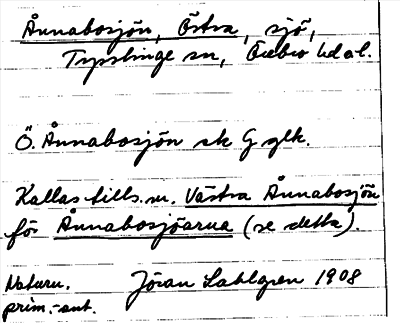 Ånnabosjön, Östra, sjö,
Tysslinge sn, Örebro hd o l.
Ö. Ånnabosjön sk G glk.
Kallas tills. m. Västra Ånnabosjön
för Ånnabosjöarna (se detta).
Naturn. Jöran Sahlgren 1908
prim.-ant.